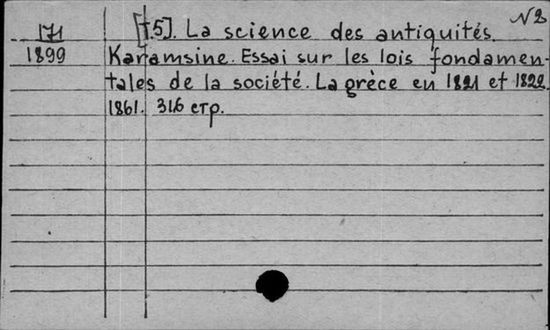 N2
171 [T.5]. La science des antiquités.
1899 Karamsine. Essai sur les lois fondamen-
tales de la société. La grèce en 1821 et 1822.
1861. 316 стр.